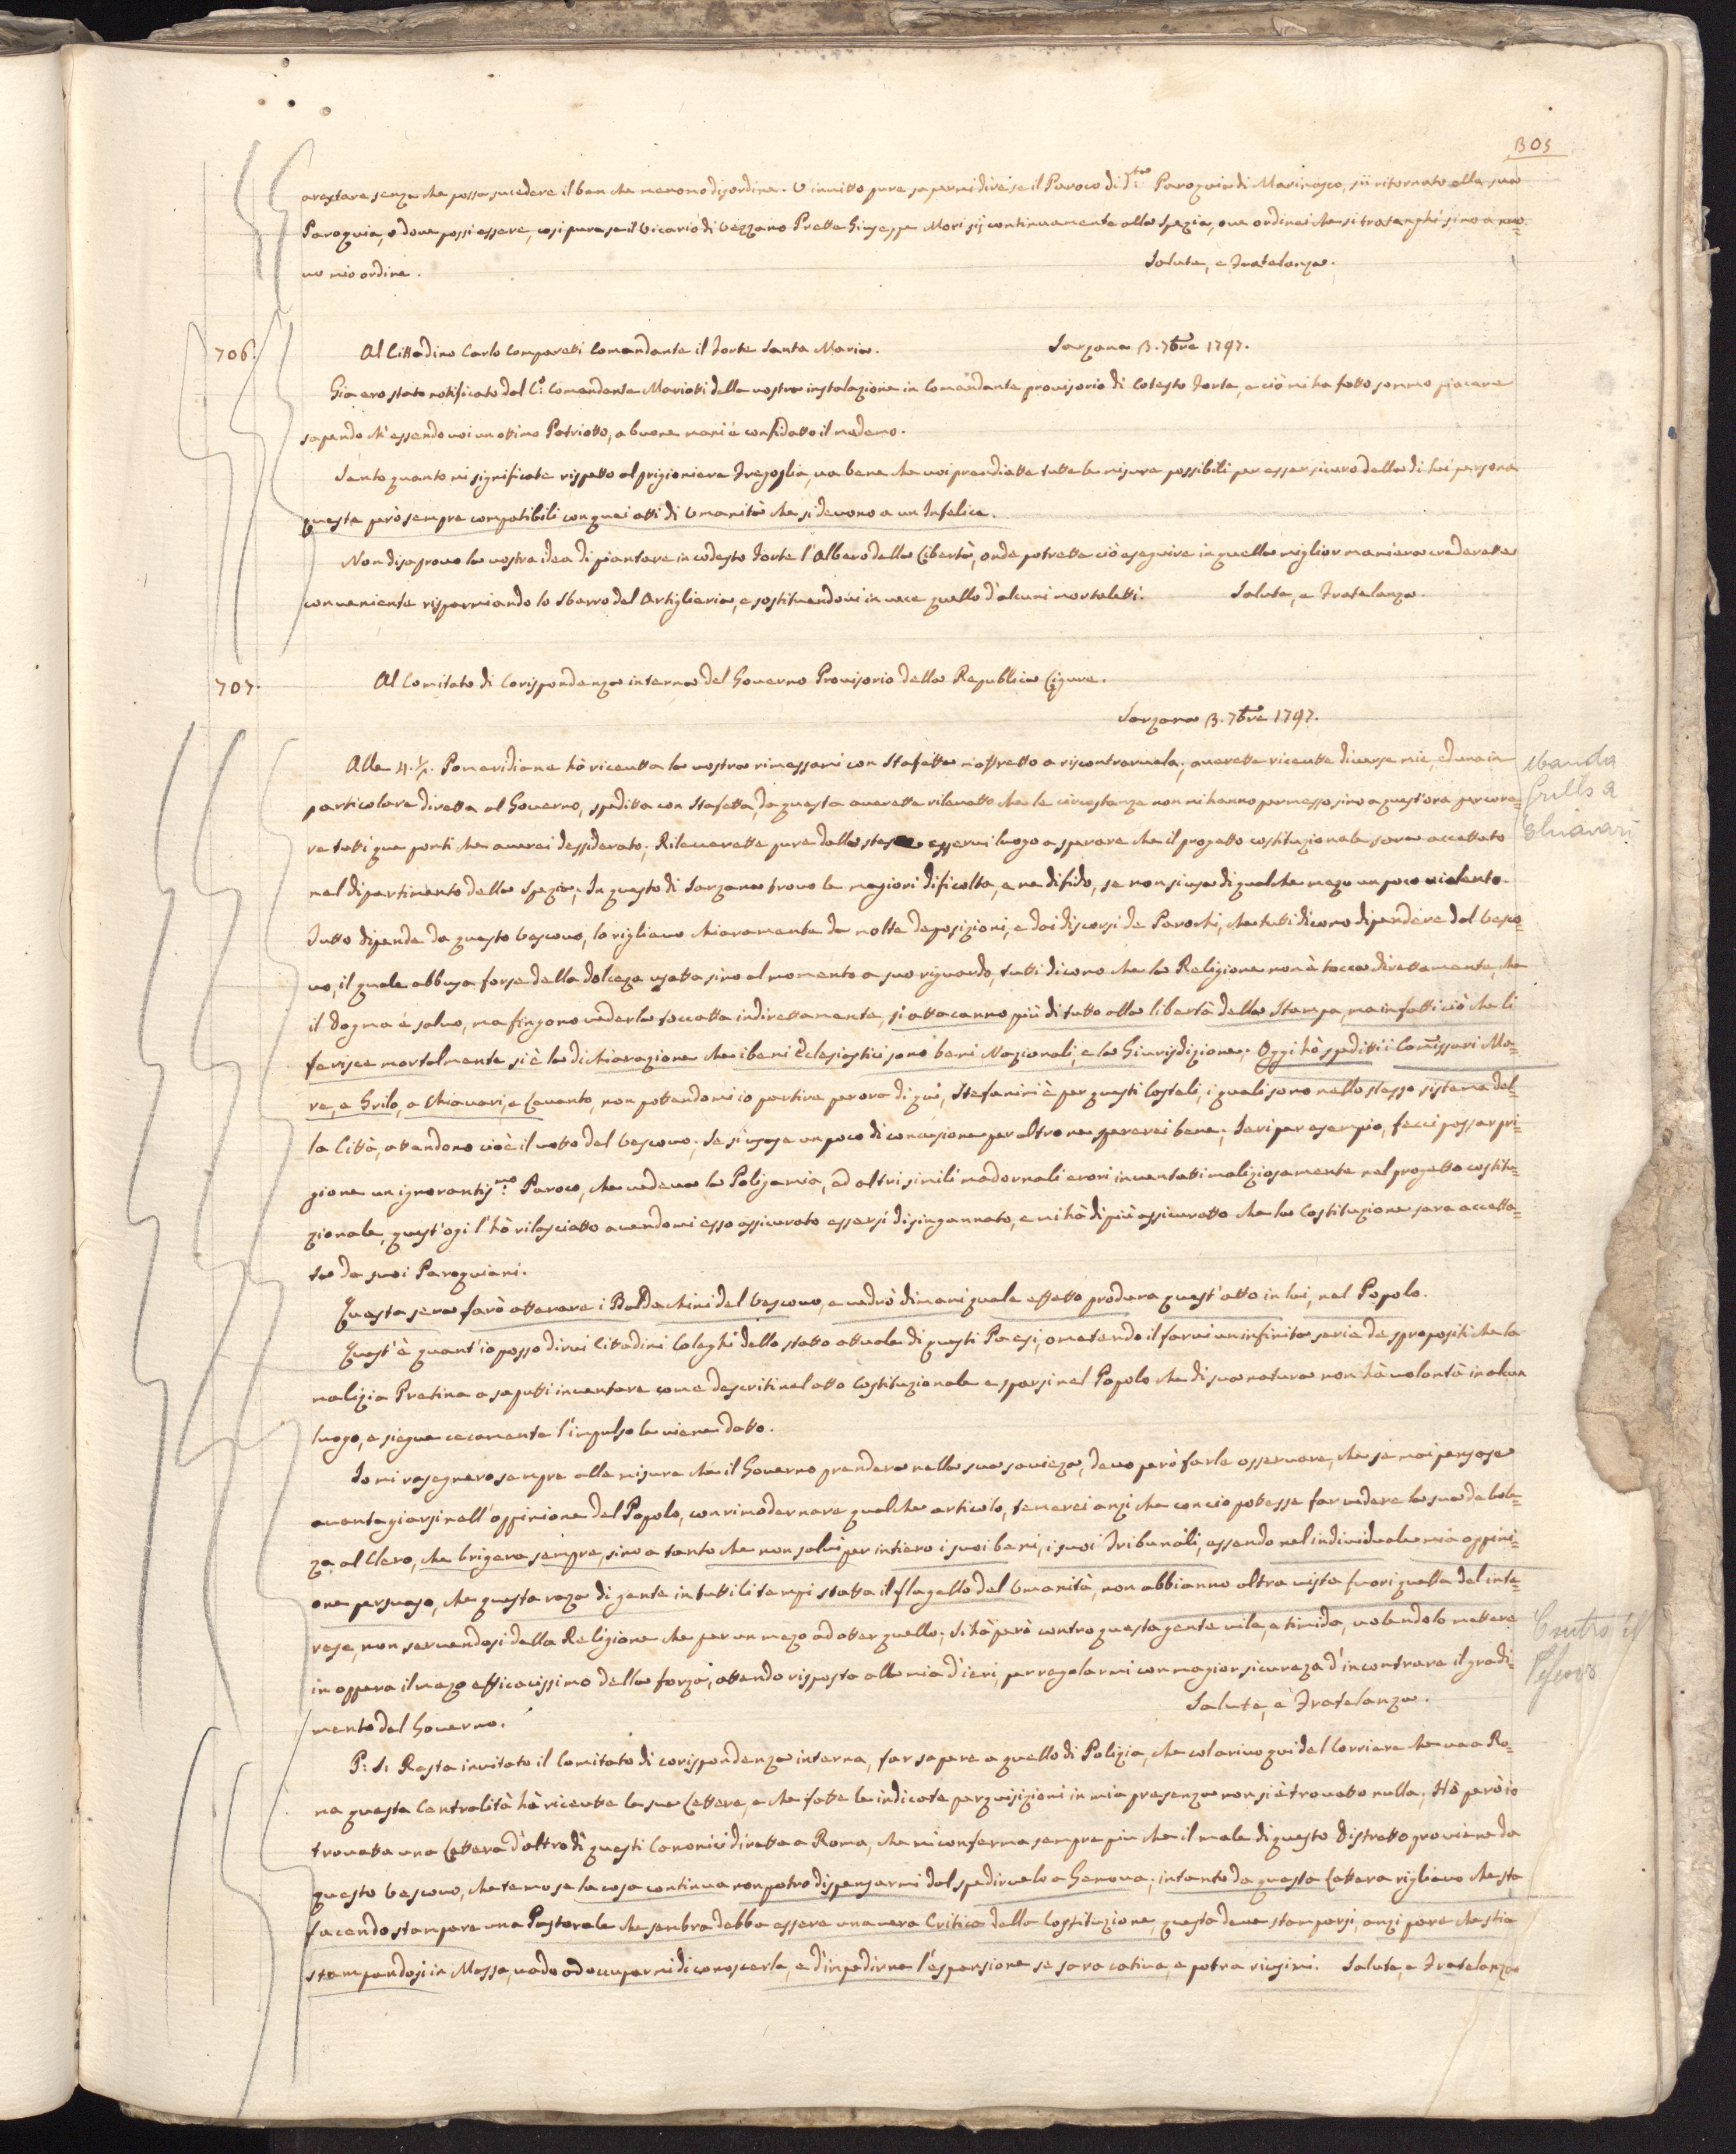 303
arestare senza che possa sucedere il ben che menomo disordine. V'invitto pure sapermi dire se il Paroco di d.ta Paroquia di Marinasco, sii ritornato alla sua
Paroquia, o dove possi essere, così pure se il Vicario di Vezzano Prette Giuseppe Mori sij continuamente alla Spezia, ove ordinai che si tratenghi sino a nuo=
vo mio ordine. Salute, e Fratelanza.
706. Al Cittadino Carlo Comparetti Comandante il Forte Santa Maria. Sarzana 3. 7bre 1797.
Gia ero stato notificato dal C.º Comandante Mariotti della vostra instalazione in Comandante provisorio di Cotesto Forte, e ciò mi ha fatto sommo piacere
sapendo ch'essendo voi un ottimo Patriotto, a buone mani é confidatto il medemo.
Sento quanto mi significate rispetto al prigioniere Fregoglia, va bene che voi prendiatte tutte le misure possibili per esser sicuro della di lui persona
queste però sempre compatibili con quei atti di Umanità che si devono a un Infelice.
Non disaprovo la vostra idea di piantare in codesto Forte l'Albero della Libertà, onde potrette ciò eseguire in quella miglior maniera crederette
conveniente risparmiando lo Sbarro del Artiglieria, e sostituendovi in vece quello d'alcuni mortaletti. Salute, e Fratelanza.
707. Al Comitato di Corispondenza interna del Governo Provisorio della Republica Ligure.
Sarzana 3. 7bre 1797.
Alle 4. ½. Pomeridiane hò riceutta la vostra rimessami con Stafetta m'affretto a riscontrarvela; averette riceutte diverse mie, ed una in
particolare diretta al Governo, speditta con Stafetta, da questa averette rilevatto che le circostanze non mi hanno permesso sino a quest'ora percore=
re tutti que ponti che averei dessiderato, Rileverette pure dalla stessa esservi luogo a sperare che il progetto costituzionale sara accettato
nel dipartimento della Spezia; In questo di Sarzana trovo le magiori dificolta, e ne difido, se non si usa di qualche mezo un poco violento.
Tutto dipende da questo Vescovo, lo riglievo chiaramente da molte deposizioni, e dai discorsi de Parochi, che tutti dicono dipendere dal Vesco=
vo, il quale abbusa forse della dolceza usatta sino al momento a suo riguardo, tutti dicono che la Religione non è tocca direttamente, che
il Dogma é salvo, ma fingono vederla toccatta indirettamente, si attaccanno più di tutto alla libertà della Stampa, ma infatti ciò che li
ferisce mortalmente si è la dichiarazione che i beni Eclesiastici sono beni Nazionali, e la Giurisdizione; Oggi hò speditti i Comissari Ma=
re, e Grilo, a Chiavari, e Levanto, non pottendomi io partire per ora di quì, Stefanini è per questi Costali, i quali sono nello stesso sistema del=
la Città, attendono cioè il votto del Vescovo; Se si usasse un poco di concusione per altro ne spererei bene; Ieri per esempio, feci passar pri=
gione un ignorantis.mo Paroco, che vedeva la Poligamia, ed altri simili madornali erori inventatti maliziosamente nel progetto costitu=
zionale, quest'ogi l'hò rilasciatto avendomi esso assicurato essersi disingannato, e mi hà di più assicuratto che la Costituzione sara accetta=
ta da suoi Paroquiani.
Questa sera farò atterare i Baldachini del Vescovo, e vedrò dimani quale effetto produra quest'atto in lui, nel Popolo.
Quest'è quant'io posso dirvi Cittadini Coleghi dello statto attuale di questi Paesi, ometendo il farvi un infinita serie de spropositi che la
malizia Pretina a saputti inventare come descriti nel atto Costituzionale e sparsi nel Popolo che di sua natura non hà volontà in alcun
luogo, e siegue cecamente l'impulso le viene datto.
Io mi rasegnero sempre alle misure che il Governo prendera nella sua savieza, devo però farle osservare, che se mai pensase
avantagiarsi nell'oppinione del Popolo, con rimodernare qualche articolo, temerei anzi che con cio potesse far vedere la sua debole=
za al Clero, che brigera sempre, sino a tanto che non salvi per intiero i suoi beni, i suoi Tribunali, essendo nel individuale mia oppini=
one persuaso, che questa raza di gente in tutti li tempi statta il flagello del Umanità, non abbianno altra vista fuori quella del inte=
rese, non servendosi della Religione che per un mezo ad otter quello; Si hà però contro questa gente vile, e timida, volendolo mettere
in oppera il mezo efficacissimo della forza; attendo risposta alla mia d'ieri, per regolarmi con magior sicureza d'incontrare il gradi=
mento del Governo. Salute, e Fratelanza.
P: S: Resta invitato il Comitato di corispondenza interna, far sapere a quello di Polizia, che col arivo qui del Corriere che va a Ro=
ma questa Centralità hà riceutte le sue Lettere, e che fatte le indicate perquisizioni in mia presenza non si è trovatto nulla; Hò però io
trovatta una Lettera d'altro di questi Canonici diretta a Roma, che mi conferma sempre piu che il male di questo Distretto proviene da
questo Vescovo, che temo se la cosa continua non potro dispensarmi dal spedirvelo a Genova; intanto da questa Lettera riglievo che sta
facendo stampare una Pastorale che sembra debba essere una vera Critica della Costituzione, questa deve stamparsi, anzi pare che stia
stampandosi in Massa, vado ad occuparmi di conoscerla, e d'impedirne l'espansione se sara cativa, e potra riusirmi. Salute, e Fratelanza
Manda
Grillo a
Chiavari
Contro il